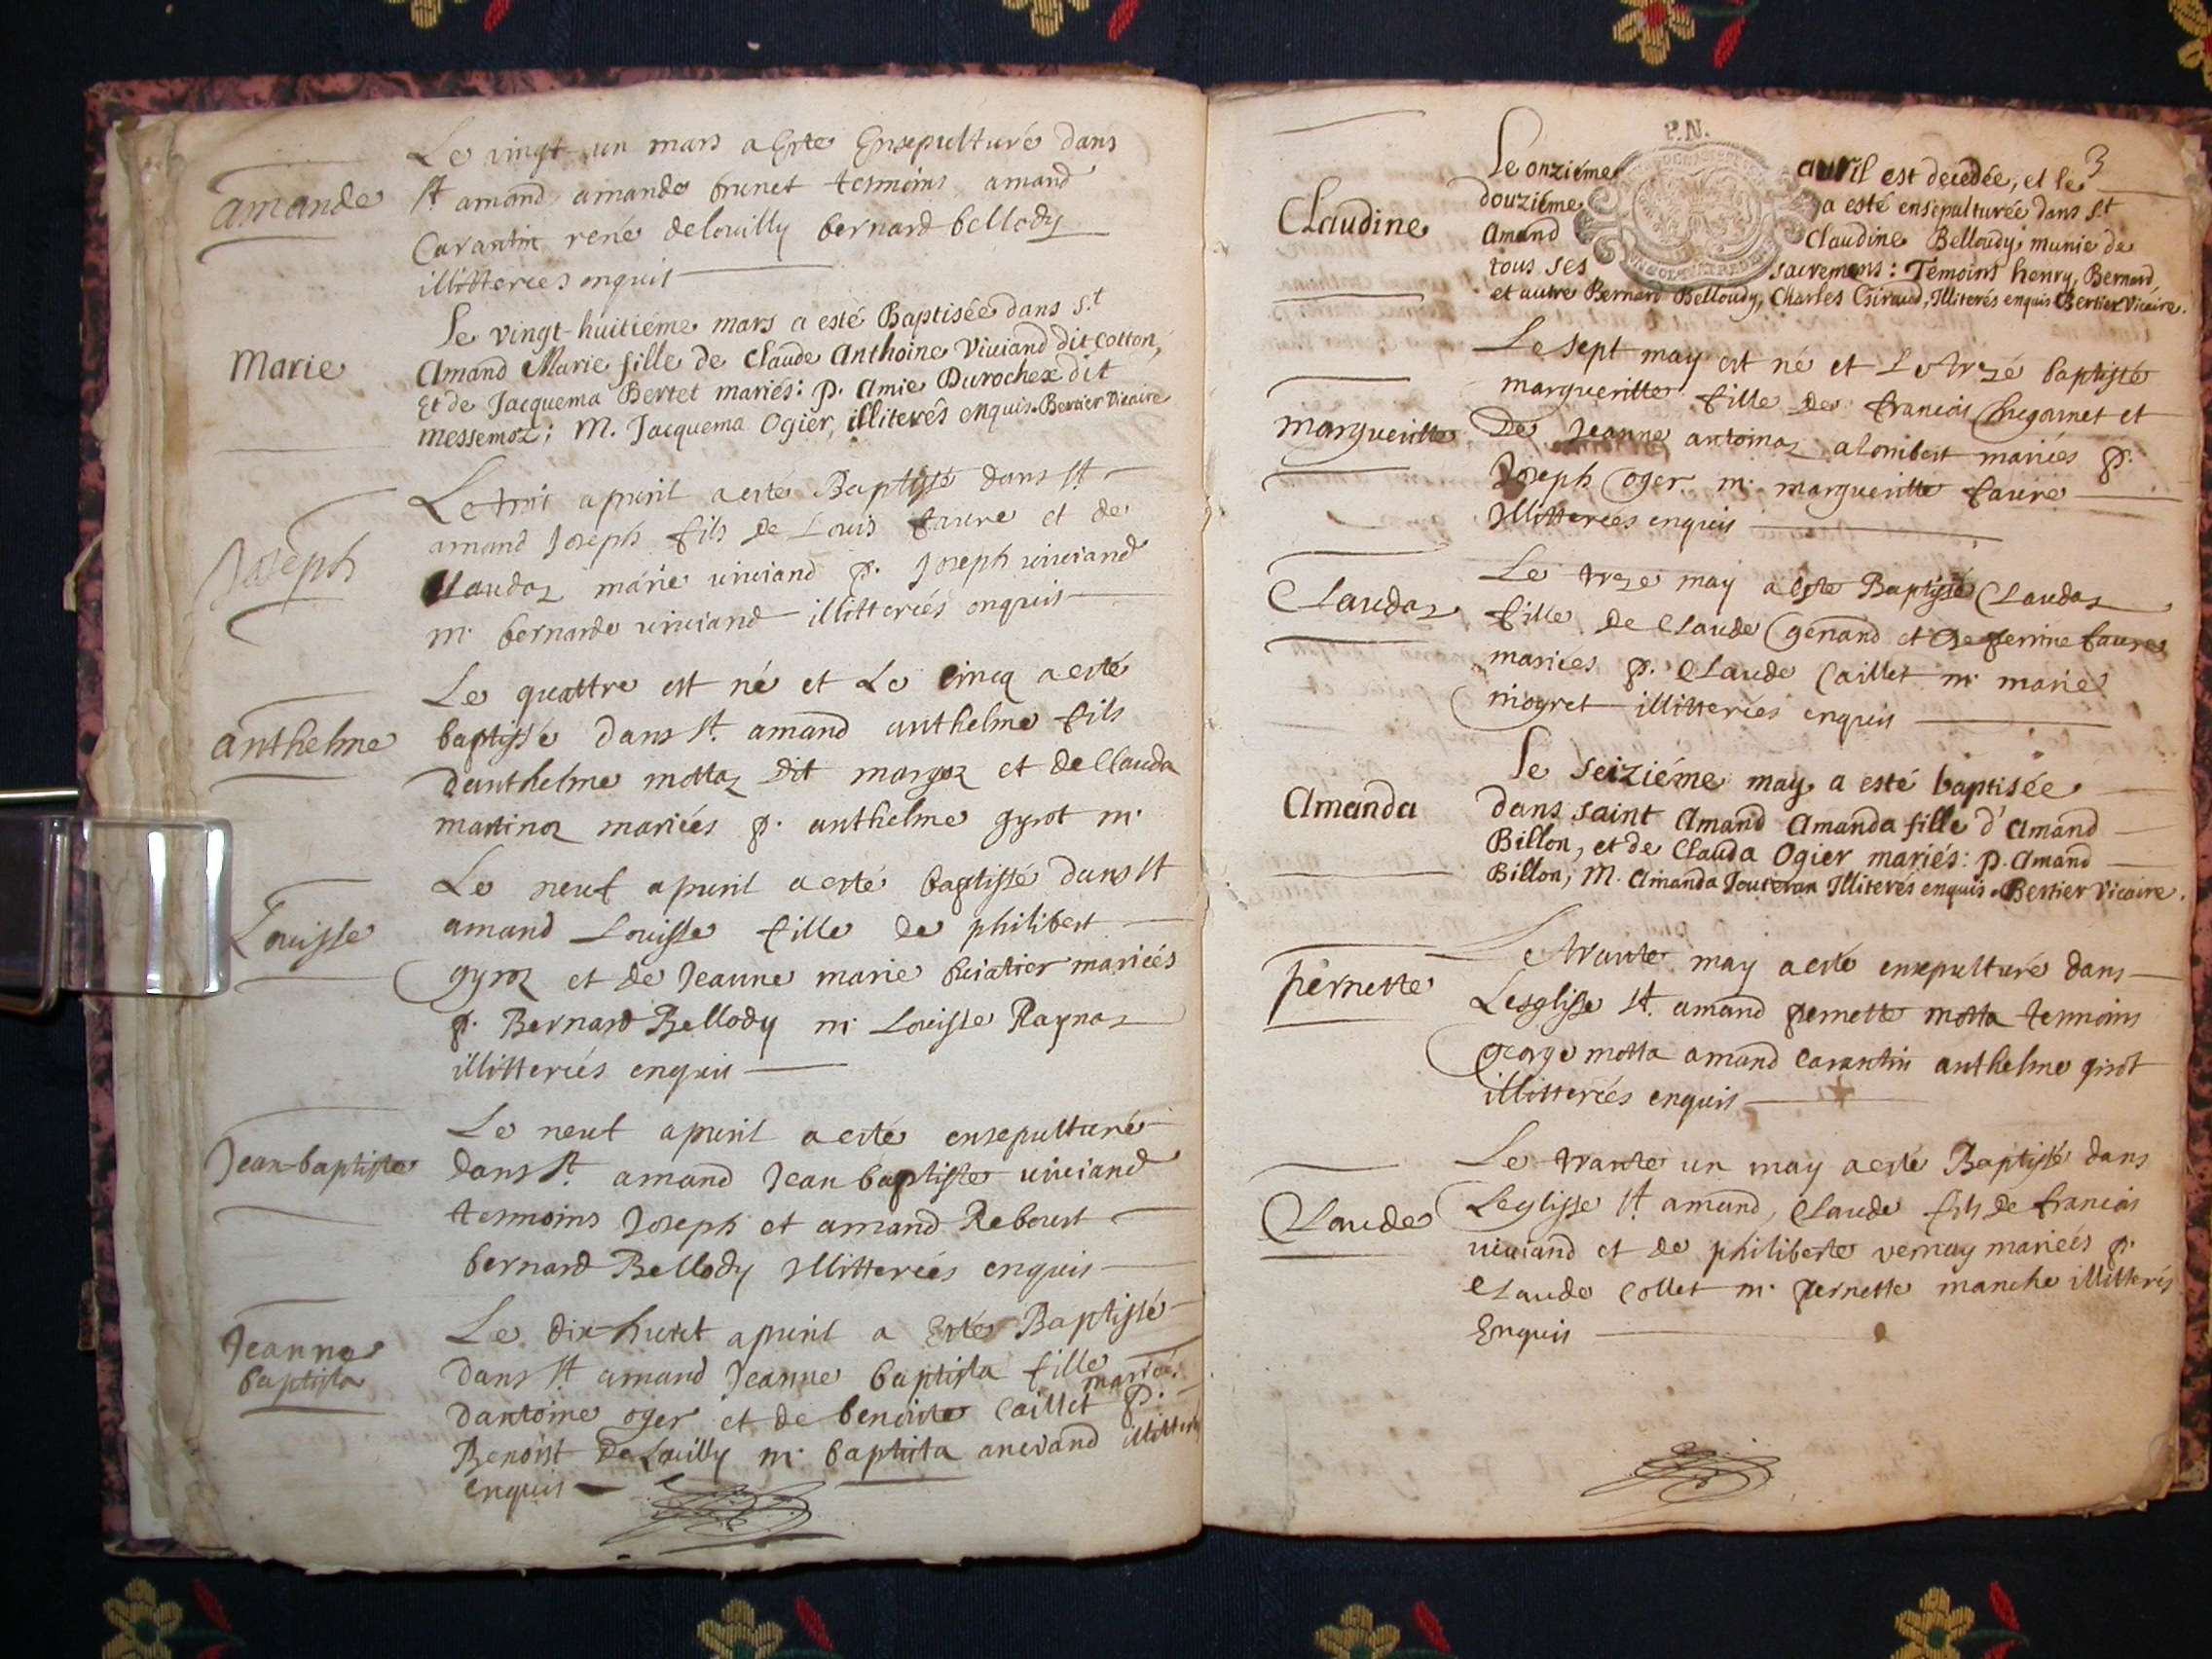 amande
Le vingt un mars a Este Ensepulturé dans
st amand amande brunet tesmoins amand
Carantin rené delouilly bernard bellody
illitterees enquis
Marie
Le vingt-huitiéme mars a esté Baptisée dans s.t
Amand Marie fille de Claude Anthoine Viuiand dit Cotton,
Et de Jacquema Bertet mariés: p. Amie Durochex dit
messemoz; M. Jacquema Ogier, illiterés enquis. Bertier Vicaire
Joseph
Le troi apuril a esté Baptissé dans st
amand Joseph fils de Louis faure et de
Claudaz marie uiuiand p. Joseph uiuiand
m. bernarde uiuiand illitterés enquis
anthelme
Le quattre est né et Le cincq a esté
baptissé dans st. amand anthelme fils
danthelme mottaz dit margoz et de Clauda
martinoz mariées p. anthelme gyrot m.
Louisse
Le neuf apuril a esté baptissé dans st
amand Louisse fille de philibert
gyroz et de Jeanne marie mariées
p. Bernard Bellody m. Louisse Raynaz
illitterés enquis
Jean-baptiste
Le neuf apuril a esté ensepulturé
dans st. amand Jean baptiste uiuiand
tesmoins Joseph et amand Reboust
bernard Bellody Jllitterées enquis
Jeanne
baptista
Le dix-huict apuril a Esté Baptissé
dans st amand Jeanne baptista fille
dantoine oger et de benoite Caillet mariés p.
Benoist de Louilly m. baptista aneiand illitterés
enquis
P.N.
3
Claudine
Le onziéme auril est decedée, et le
douziéme a esté ensepulturée dans s.t
Amand Claudine Belloudy munie de
tous ses sacremens: Temoins henry, Bernard
et autre Bernard Belloudy, Charles Giraud, Illiterés enquis Bertier Vicaire.
margueritte
Le sept may est né et Le treze baptissé
margueritte fille de francois hugonnet et
De Jeanne antoinaz alombert mariées p.
Joseph oger m. margueritte faure
Jllitterées enquis
Claudaz
Le treze may a este Baptissé Claudaz
fille de Claude genand et de perrine faure
mariées p. Claude Caillet m. marie
niogret illitterées enquis
Amanda
Le seiziéme may a esté baptisée
dans saint Amand Amanda fille d'Amand
Billon, et de Clauda Ogier mariés: p. Amand
Billon, M. Amanda Jouteran Illiterés enquis. Bertier Vicaire.
pernette
Le trante may a esté ensepulturé dans
Lesglisse st. amand pernette motta tesmoins
george motta amand carantin anthelme girot
illitterées enquis
Claude
Le trante un may a esté Baptissé dans
Leglisse st. amand, Claude fils de francois
uiuiand et de philiberte vernay mariées p.
Claude Collet m. pernette manche illitterés
Enquis